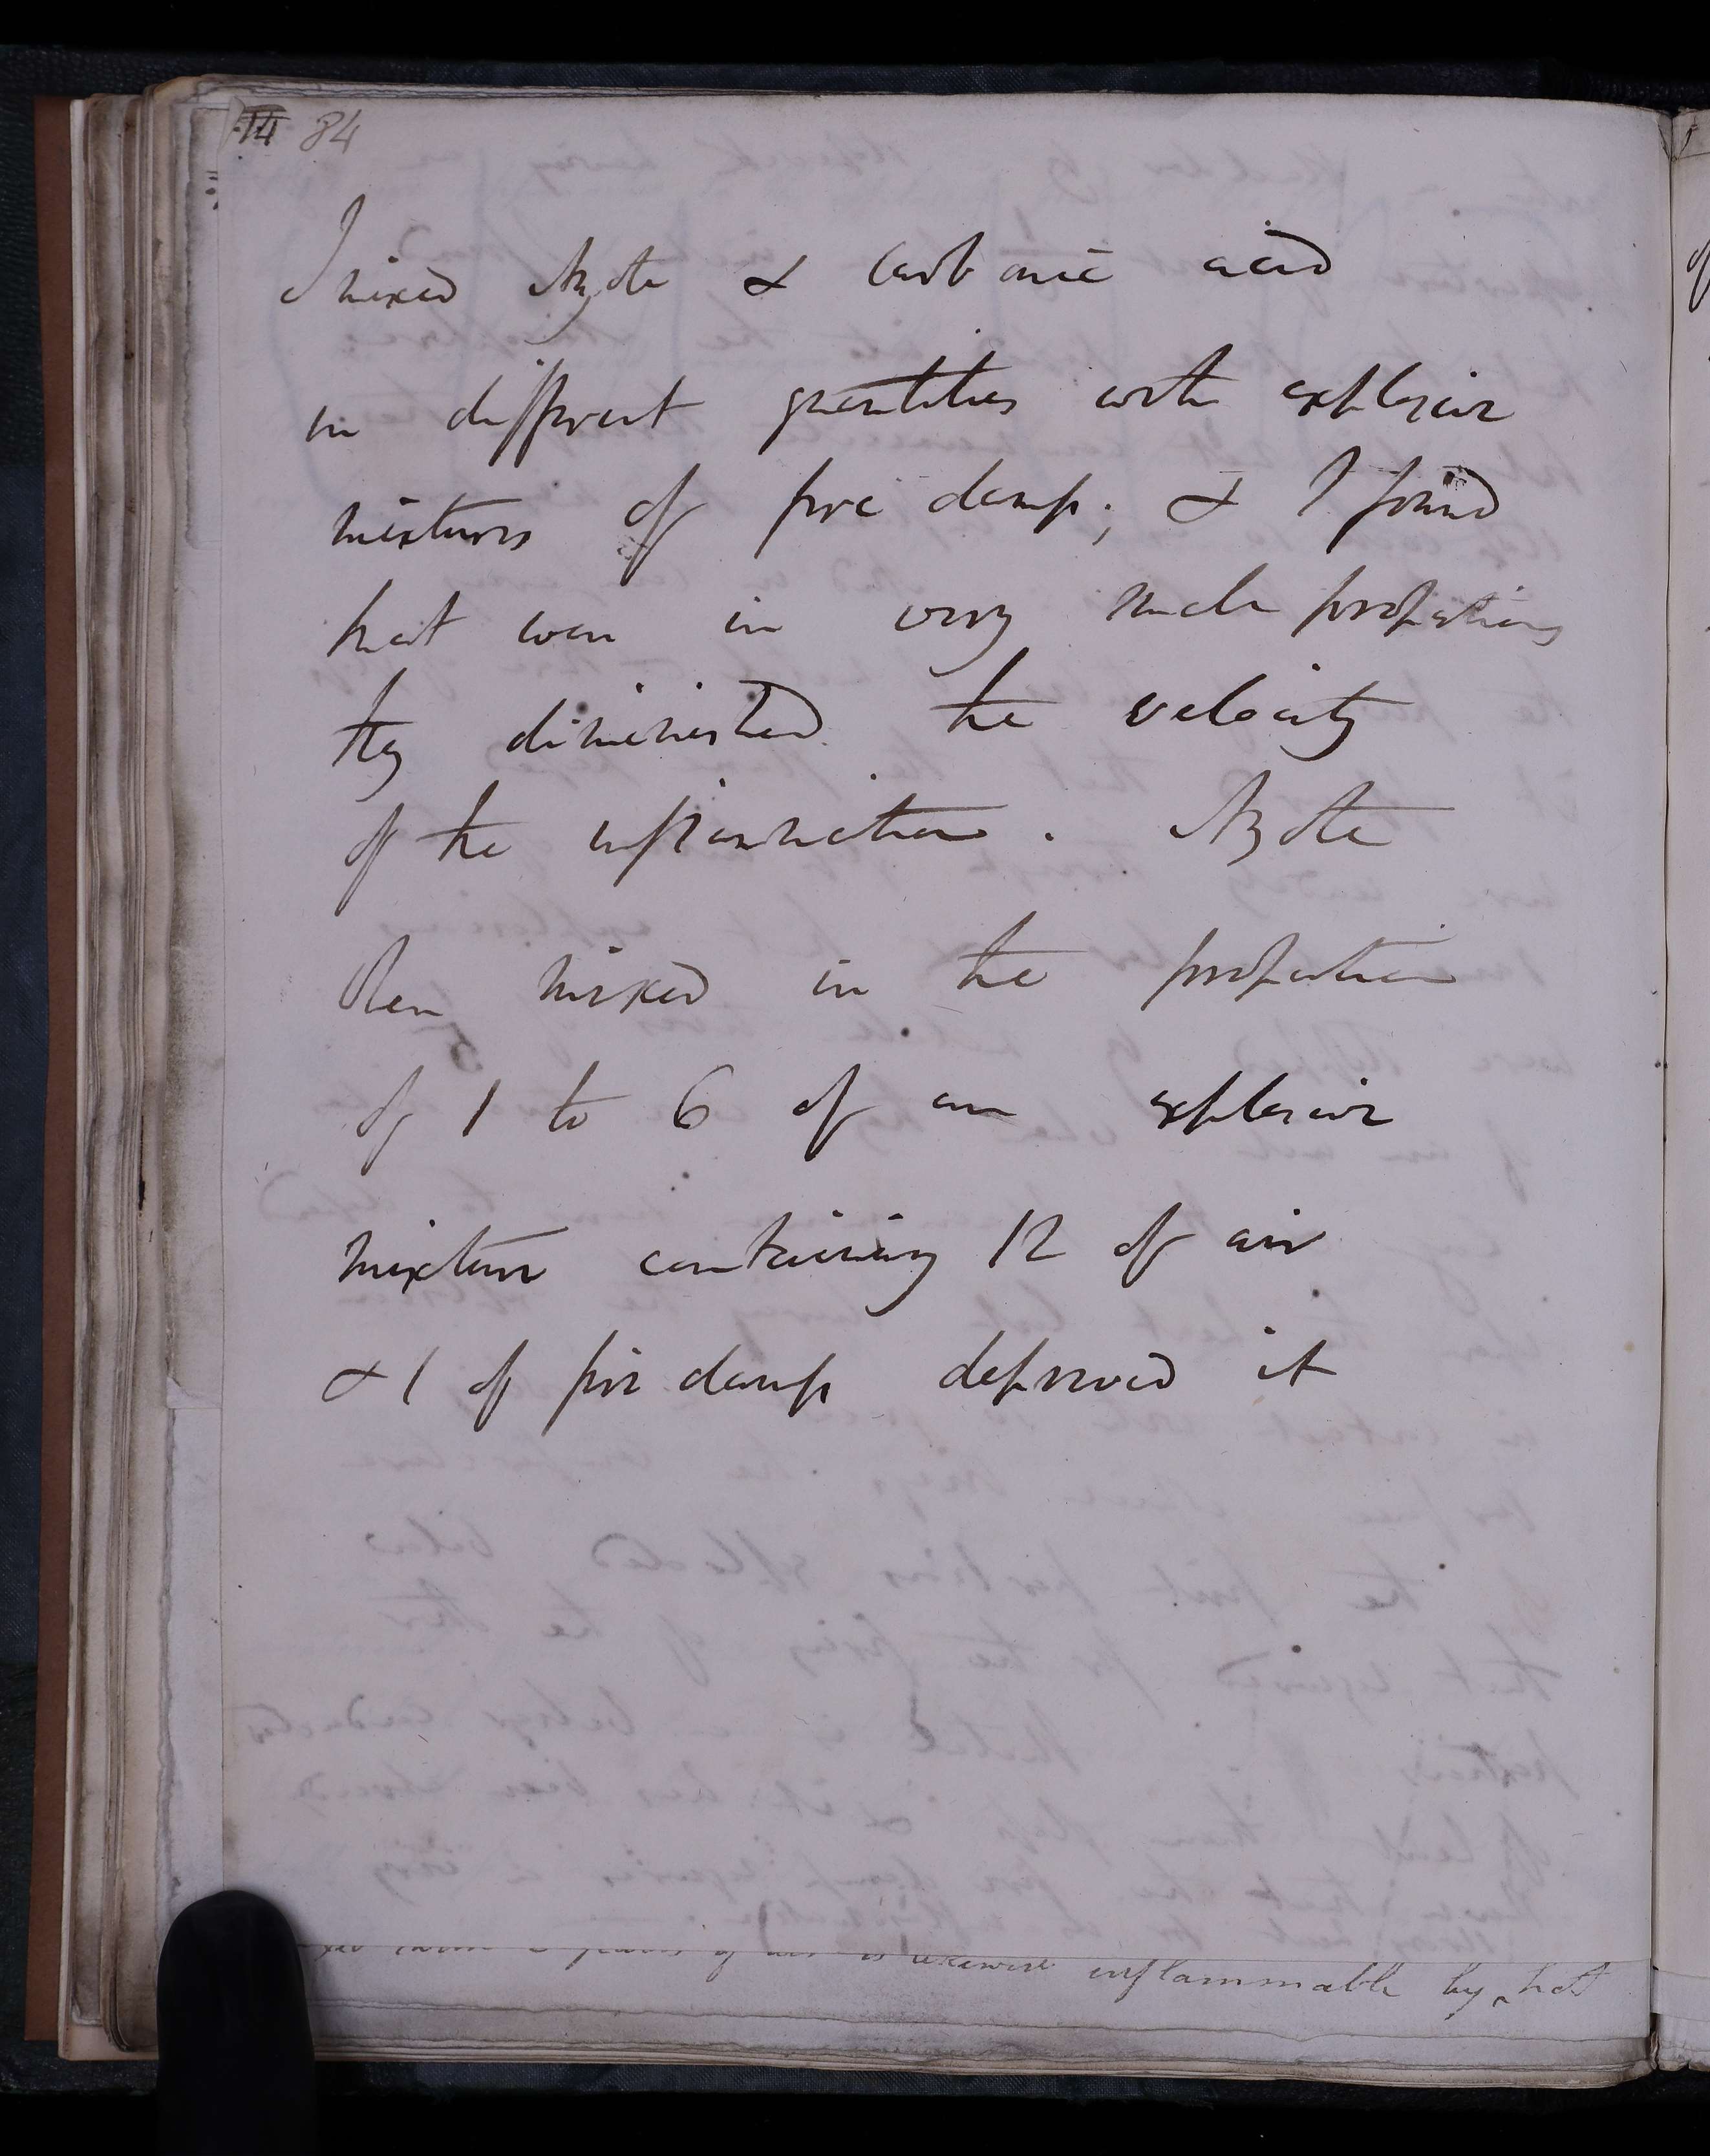 14 84
I mixed Azote & carbonic acid
in different quantities with explosive
mixtures of fire damp; & I found
that even in very small proportions
they diminished the velocity
of the inflammation. Azote
when mixed in the proportion
of 1 to 6 of an explosive
mixture containing 12 of air
& 1 of fire damp deprived it
of air is likewise inflammable by hot